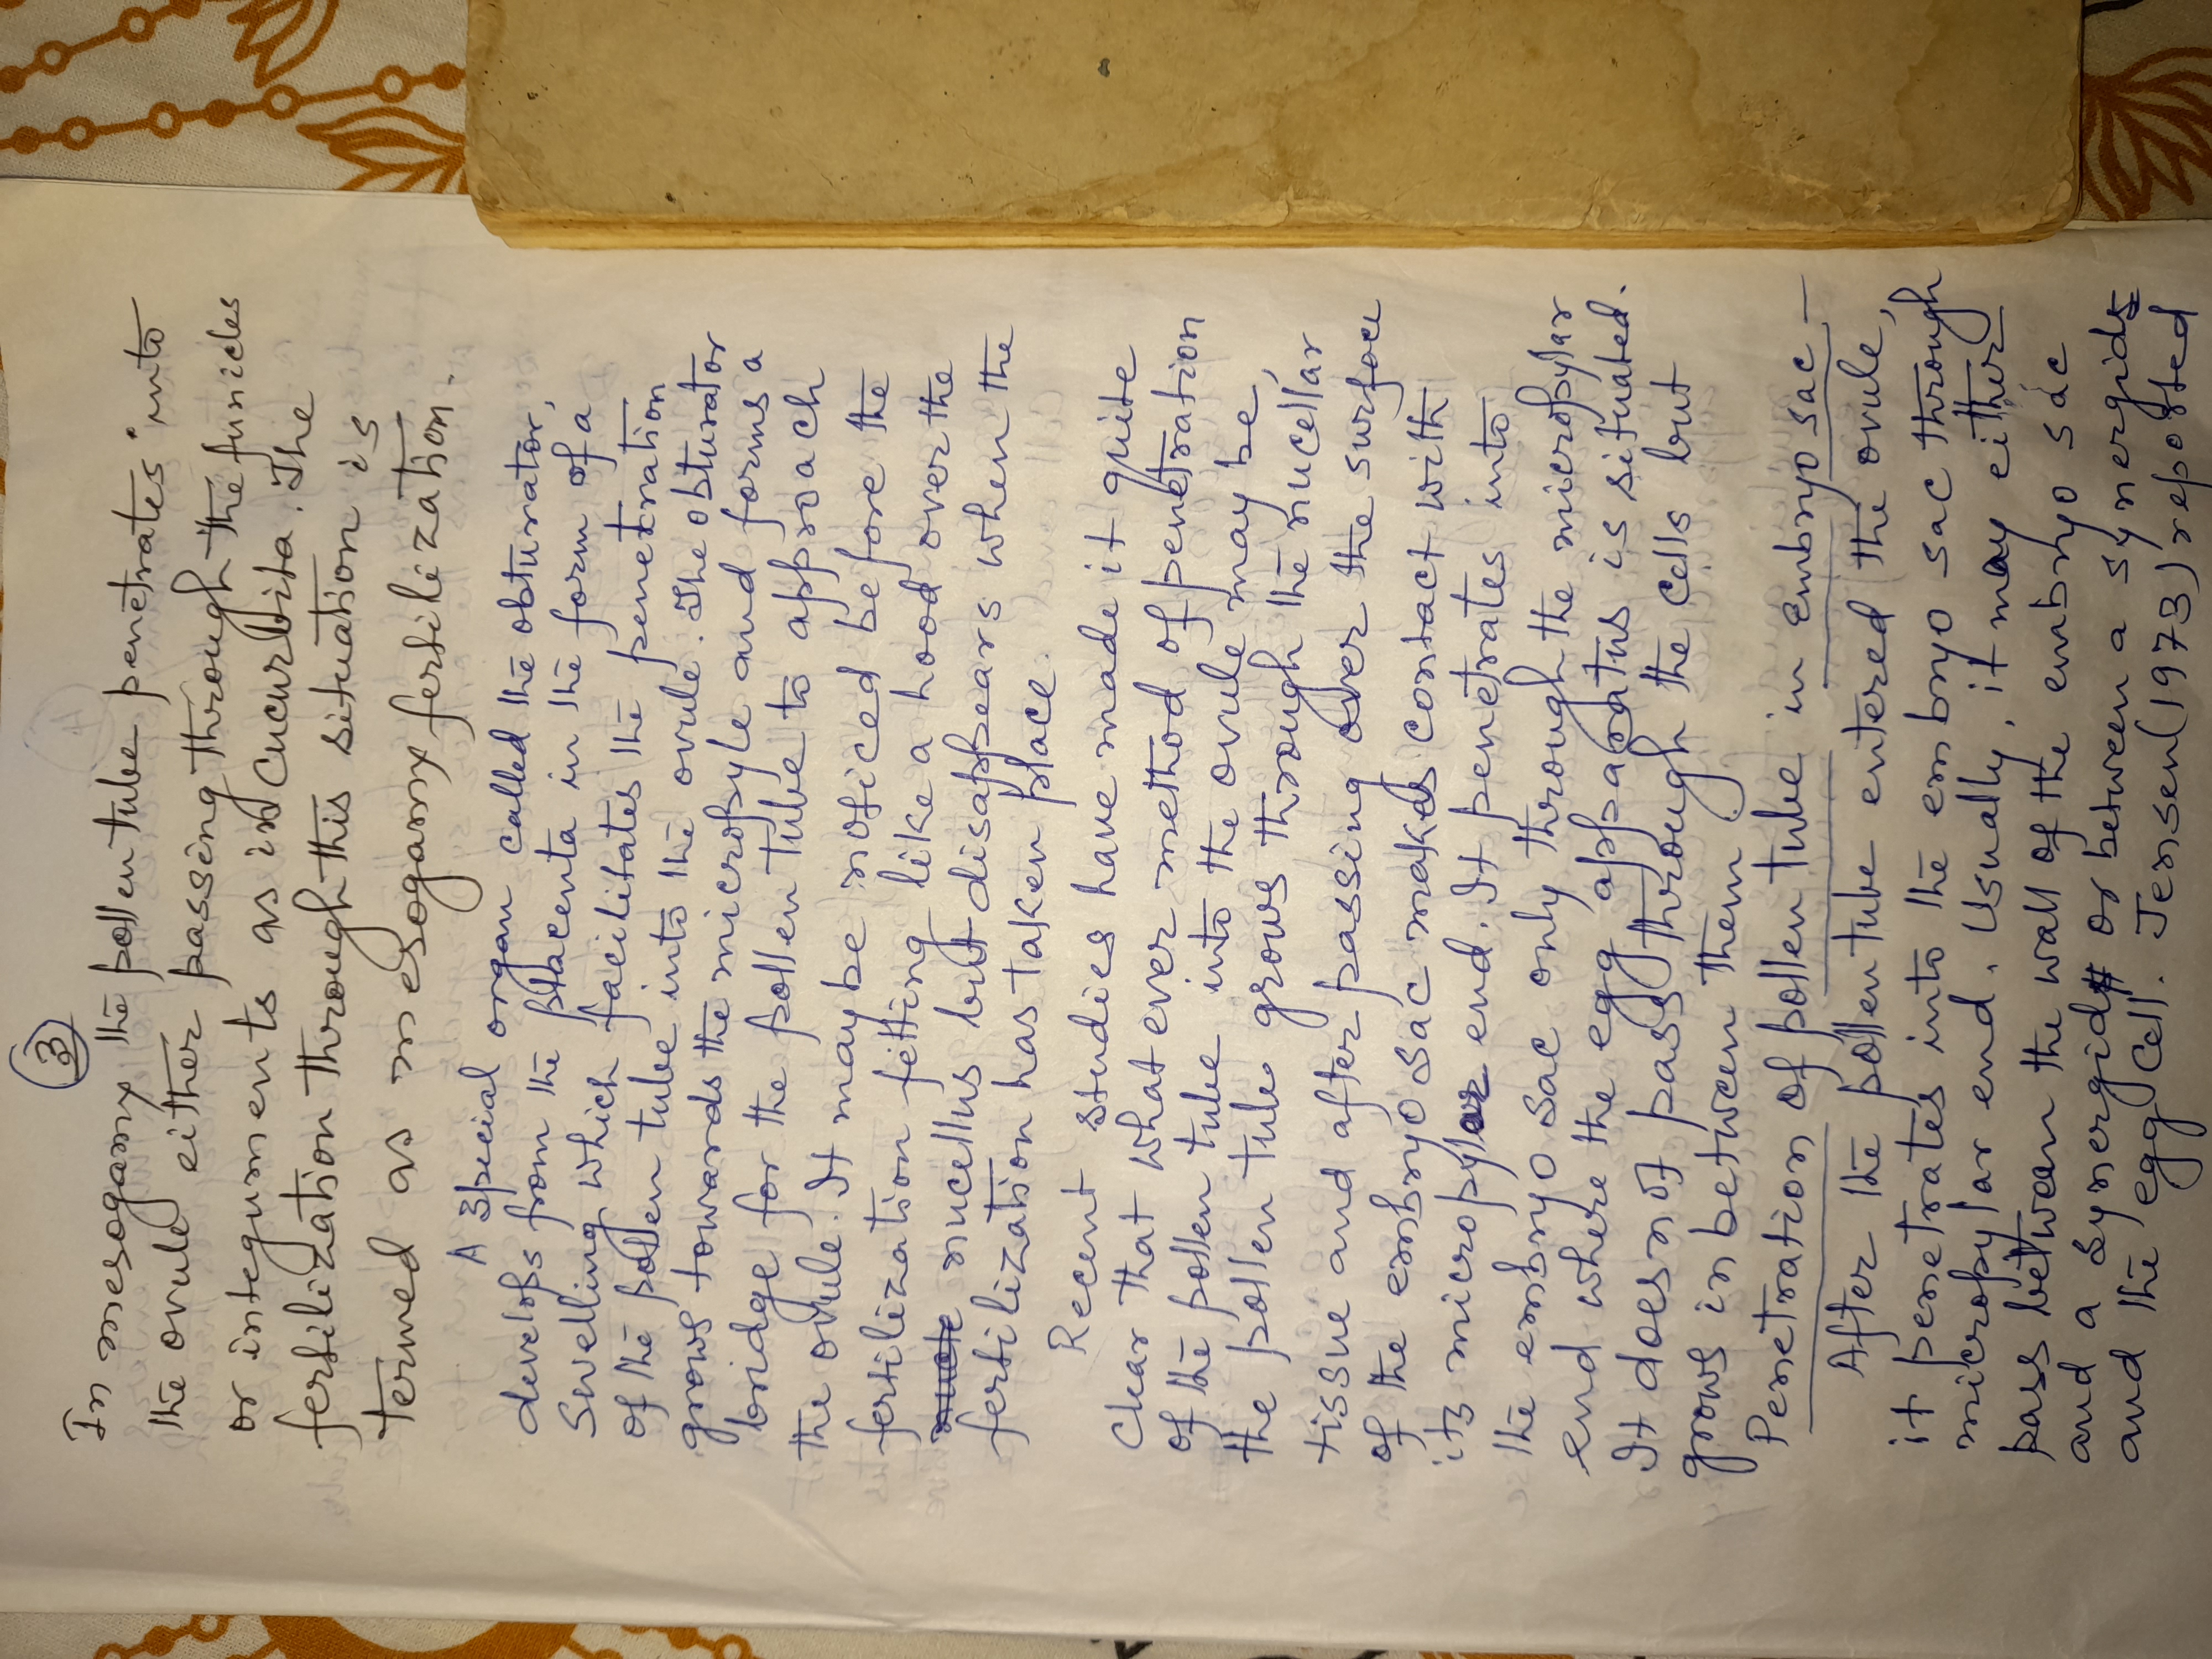 3
In mesogamy the pollen tube penetrates into
the ovule either passing through the funicles
or integuments as in Cucurbita. The
fertilization through this situation is
termed as mesogamy fertilization.
A special organ called the obturator,
develops from the placenta in the form of a
Swelling which facilitates the penetration
of the pollen tube into the ovule. The obturator
grows towards the micropyle and forms a
bridge for the pollen tube to approach
the ovule. It may be noticed before the
fertilization fitting like a hood over the
nucellus but disappears when the
fertilization has taken place.
Recent studies have made it quite
Clear that what ever method of penetration
of the pollen tube into the ovule may be,
the pollen tube grows through the nucellar
tissue and after passing over the surface
of the embryo sac makes contact with
its micropylar end. It penetrates into
the embryo sac only through the micropylar
end where the egg apparatus is situated.
It does not pass through the cells but
grows in between them.
Penetration of pollen tube in embryo sac –
After the pollen tube entered the ovule,
it penetrates into the embryo sac through
micropylar end. Usually, it may either
pass between the wall of the embryo sac
and a synergid or between a synergids
and the egg cell. Jensen (1973) reported